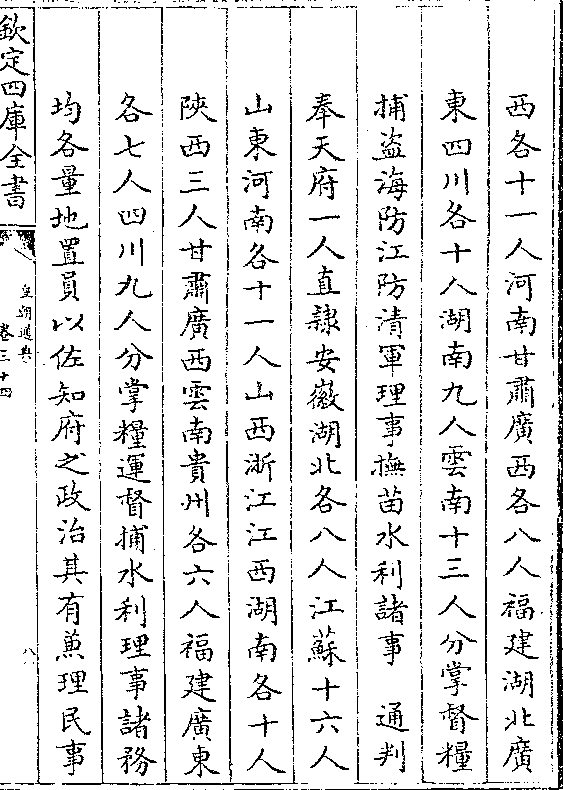 西各十一人河南甘肅廣西各八人福建湖北廣
東四川各十人湖南九人雲南十三人分掌督糧
捕盜海防江防清軍理事撫苗水利諸事　通判
奉天府一人直隸安徽湖北各八人江蘇十六人
山東河南各十一人山西浙江江西湖南各十人
陝西三人甘肅廣西雲南貴州各六人福建廣東
各七人四川九人分掌糧運督捕水利理事諸務
均各量地置員以佐知府之政治其有兼理民事
欽定四庫全書
皇朝通典
卷三十四
八